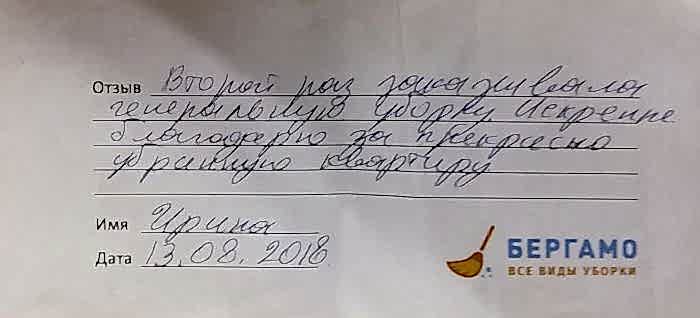 Отзыв Второй раз заказывала
генеральную уборку. Искренне
благодарю за прекрасно
убранную квартиру
Имя Ирина
Дата 13.08.2018
БЕРГАМО
ВСЕ ВИДЫ УБОРКИ